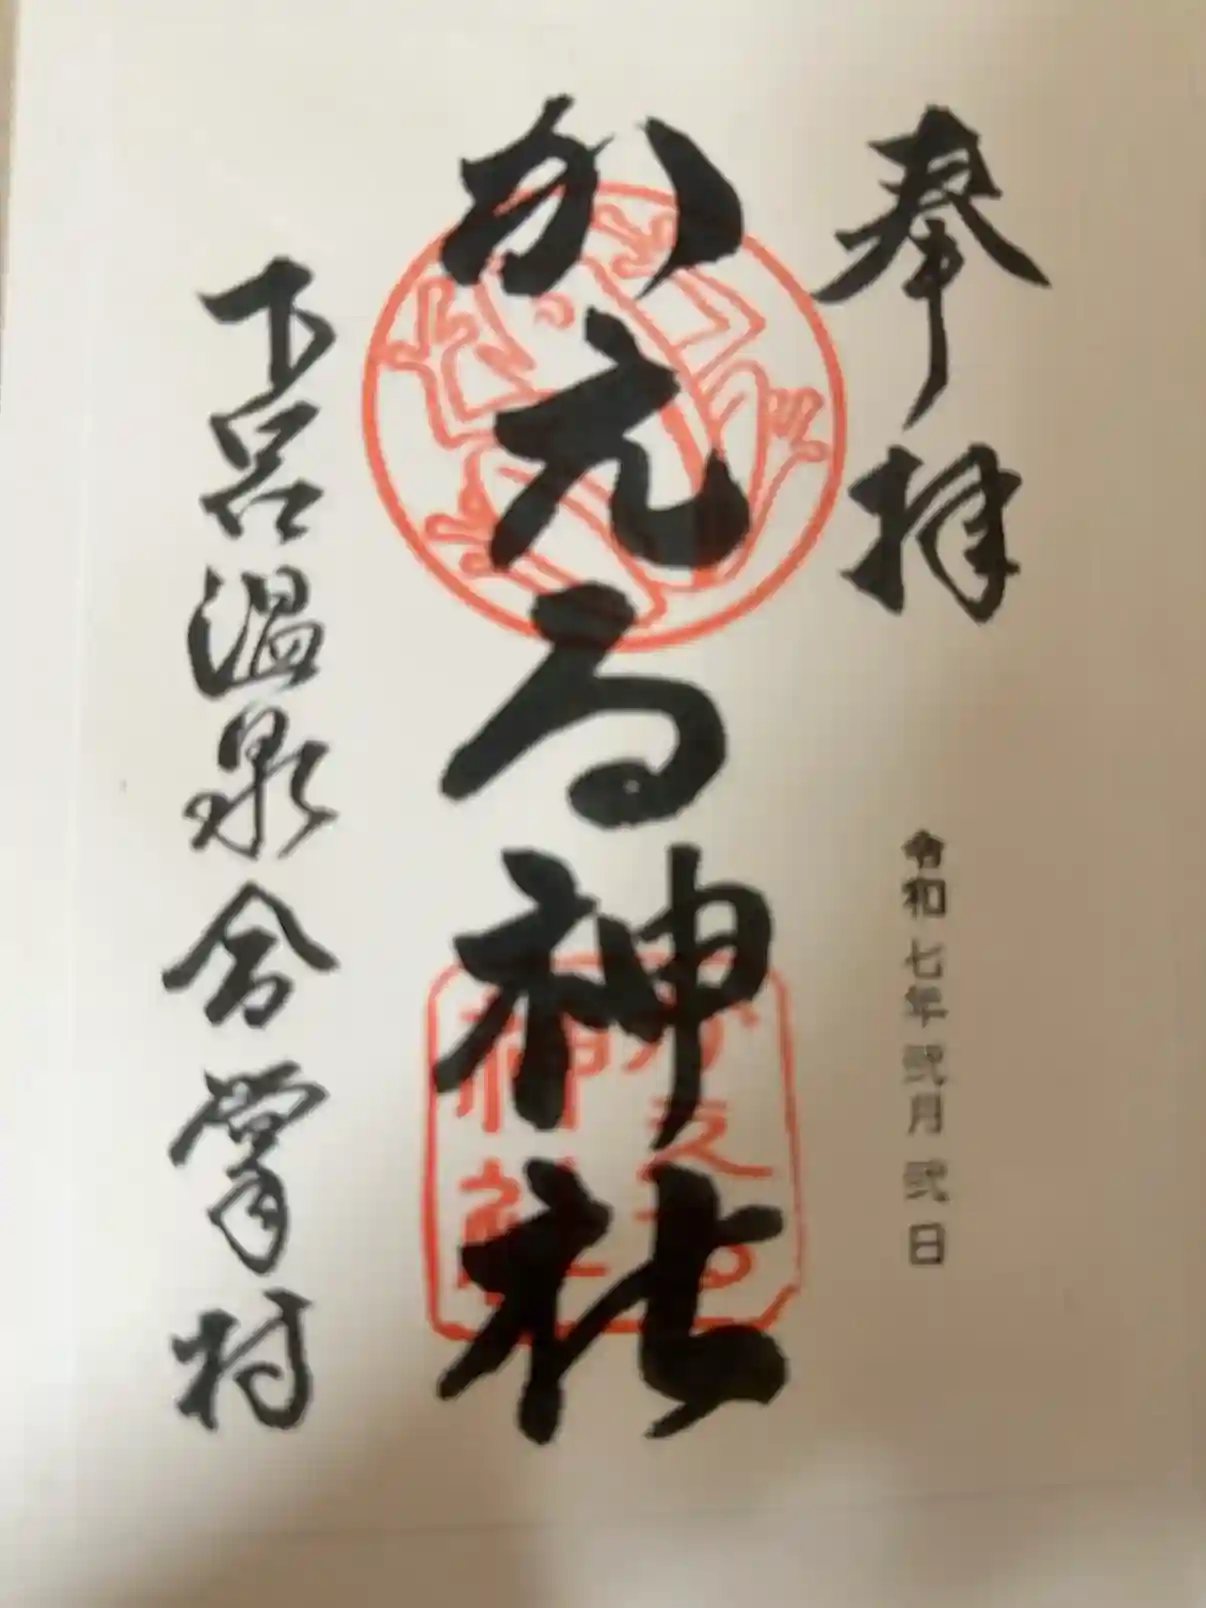 奉拝
令和七年弐月弐日
かえる神社
かえる
神社
下呂温泉合掌村